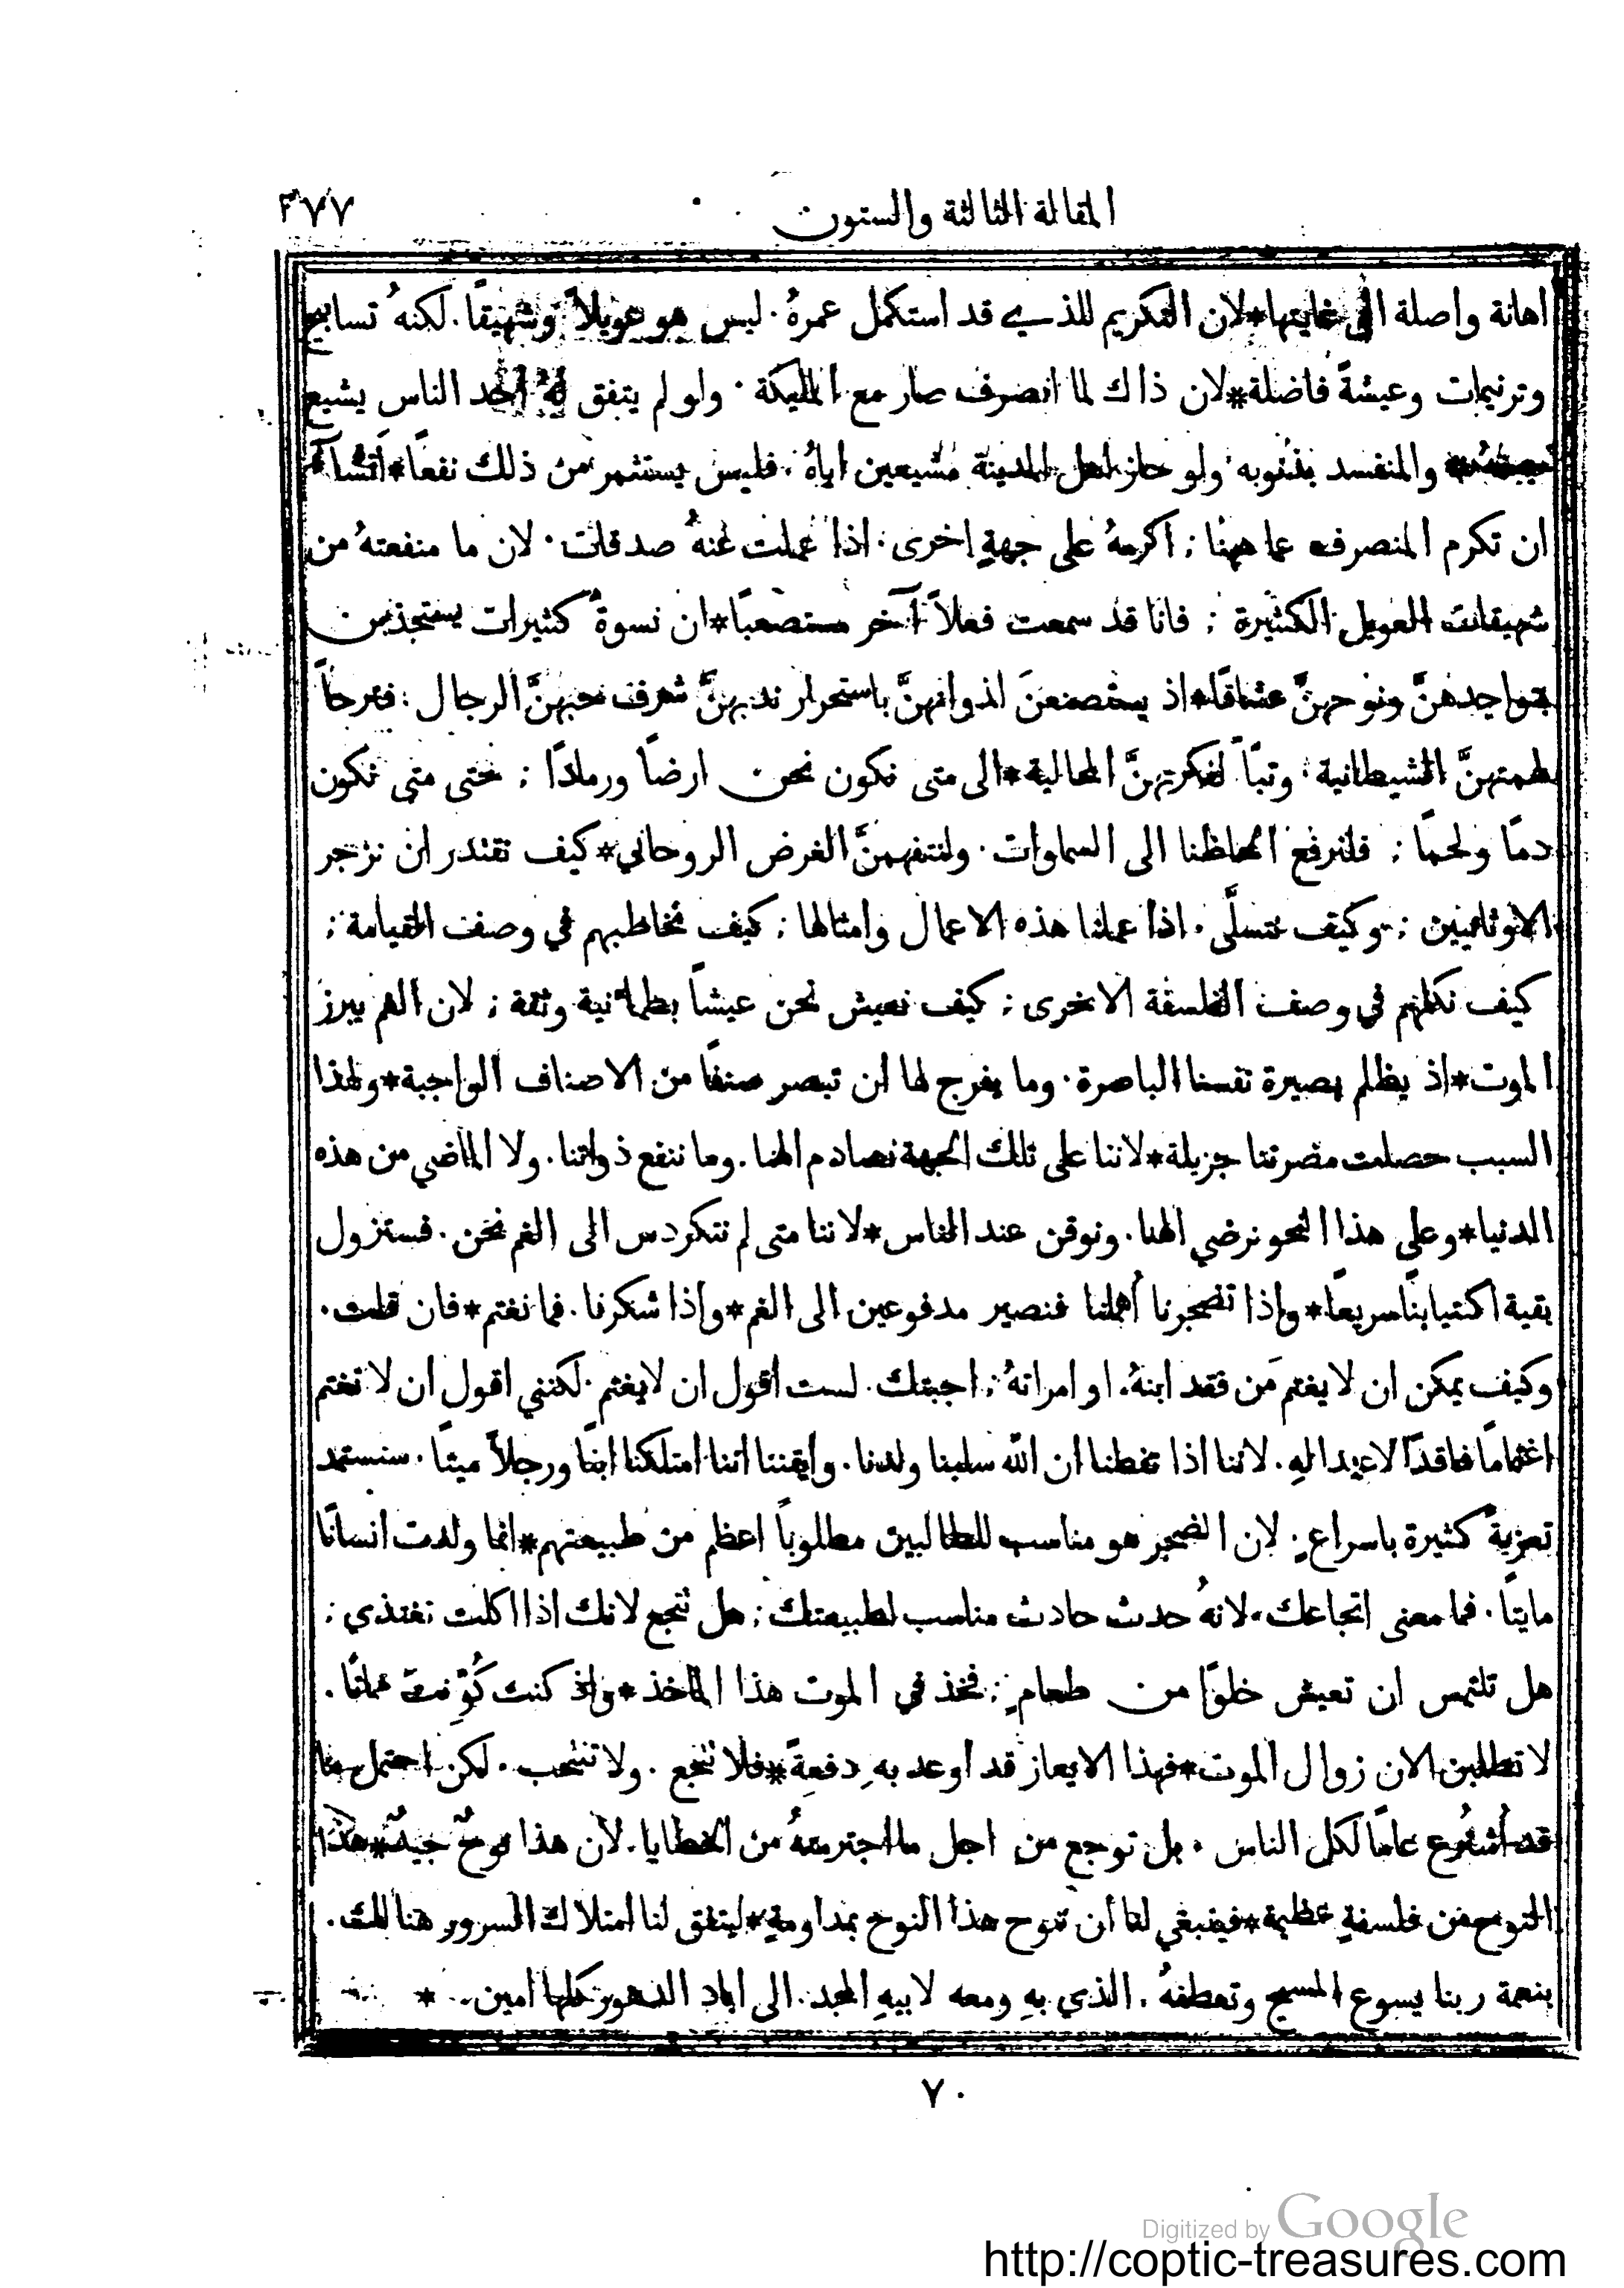 المقالة الثالثة والستون ٣٧٧
اهانة واصلة الى غايتها*لان التكريم للذي قد استكمل عمرهُ. ليس هو عويلاً وشهيقًا. لكنهُ تسابيح
وترنيمات وعيشةً فاضلة*لان ذاك لما انصرف صار مع المليكة. ولو لم يتفق لهُ احد الناس يشيع
والمنفسد بذنوبه ولو حاز اهل المدينة مشيعين اياهُ. فليس يستثمر من ذلك نفعًا*اتشاء
ان تكرم المنصرف عما ههنا; اكرمهُ على جهةٍ اخرى. اذا عملت عنهُ صدقات. لان ما منفعتهُ من
شهيقات العويل الكثيرة; فانا قد سمعت فعلاً آخر مستصعبًا*ان نسوةً كثيرات يستجذبن
بتواجدهنَّ ونوحهنَّ عشاقًا*اذ يستصنعنَ لذواتهنَّ باستحرار ندبهنَّ شرف حبهنَّ الرجال: فترحاً
لهمتهنَّ الشيطانية. وتبّاً لفكرتهنَّ المحالية*الى متى نكون نحن ارضاً ورمادًا; حتى متى نكون
دمًا ولحمًا; فلنرفع الحاظنا الى السماوات. ولنتفهمنَّ الغرض الروحاني*كيف نقتدر ان نزجر
الاوثانيين; وكيف نتسلَّى. اذا عملنا هذه الاعمال وامثالها; كيف نخاطبهم في وصف القيامة;
كيف نكلمهم في وصف الفلسفة الاخرى; كيف نعيش نحن عيشاً بطمأنية وثقة; لان الغم يبرز
الموت*اذ يظلم بصيرة نفسنا الباصرة. وما يفرج لها ان تبصر صنفًا من الاصناف الواجبة*ولهذا
السبب حصلت مضرتنا جزيلة*لاننا على تلك الجهة نصادم الهنا. وما ننفع ذواتنا. ولا الماضي من هذه
الدنيا*وعلى هذا النحو نرضي الهنا. ونوقن عند الناس*لاننا متى لم نتكردس الى الغم نحن. فستزول
بقية اكتيابنا سريعًا*واذا تضجرنا أهملنا فنصير مدفوعين الى الغم*واذا شكرنا. فما نغتم*فان قلت.
وكيف يمكن ان لا يغتم مَن فقد ابنهُ. او امراتهُ; اجبتك. لست أقول ان لا يغتم. لكنني اقول ان لا تغتم
اغتمامًا فاقدًا الاعتدالهِ. لاننا اذا تفطنا ان الله سلبنا ولدنا. وايقننا اننا امتلكنا ابنًا ورجلاً ميتًا. سنستمد
تعزيةً كثيرة باسراعٍ. لان الضجر هو مناسب للطالبين مطلوباً اعظم من طبيعتهم*انما ولدت انسانًا
مايتًا. فما معنى اتجاعك. لانهُ حدث حادث مناسب لطبيعتك; هل تتجع لانك اذا اكلت تغتذي;
هل تلتمس ان تعيش خلوًا من طعامٍ; فخذ في الموت هذا الماخذ*واذ كنت كُوِّنت مايتًا.
لا تطلبن الان زوال الموت*فهذا الايعاز قد أوعد بهِ دفعةً*فلا تتجع. ولا تنتحب. لكن احتمل ما
قد أشترع عامًا لكل الناس. بل توجع من اجل ما اجترمتهُ من الخطايا. لان هذا نوحٌ جيدٌ*هذا
النوح من فلسفةٍ عظيمة*فينبغي لنا ان ننوح هذا النوح بمداومةٍ*ليتفق لنا امتلاك السرور هنالك.
بنعمة ربنا يسوع المسيح وتعطفهُ. الذي بهِ ومعه لابيهِ المجد. الى اباد الدهور كلها امين. *
٧٠
Digitized by Google
http://coptic-treasures.com